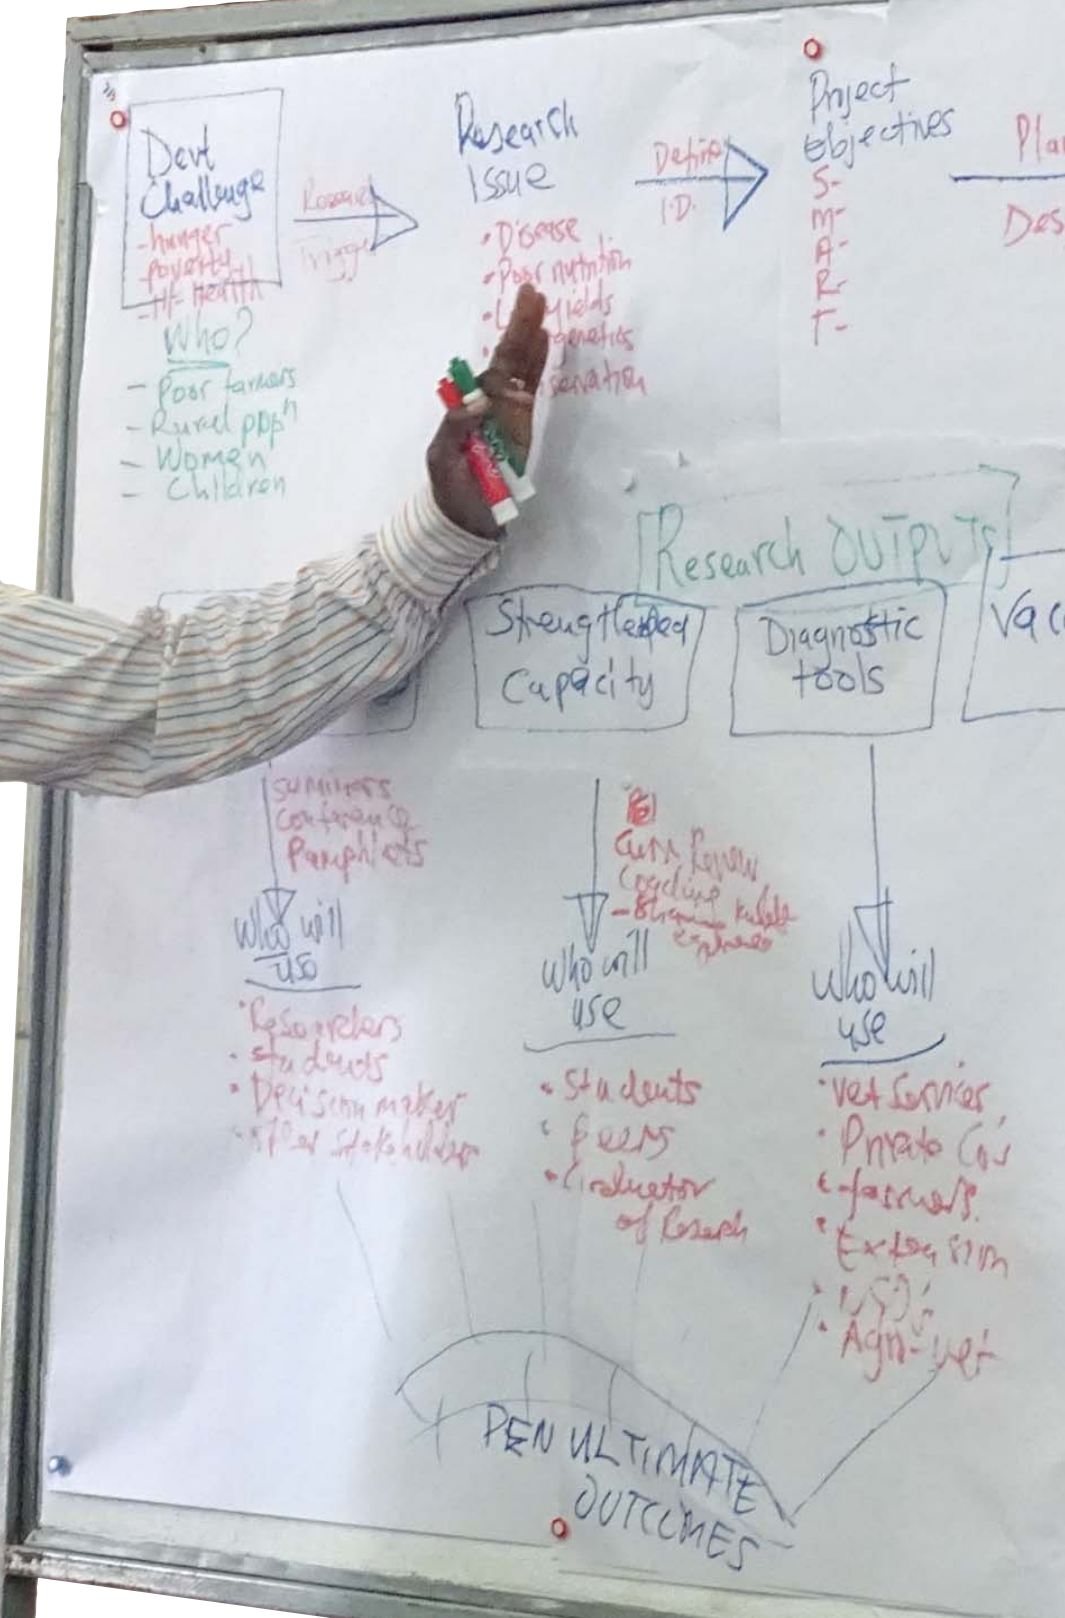 Devt
Challenge
-hunger
-poverty
-Ill-Health
Who?
- Poor farmers
- Rural ppn
- Women
- Children
Research
Research
Issue
• Disease
• Poor nutrition
yields
genetics
servation
Define
I.D.
Project
Objectives
S-
M-
A-
R-
T-
Pla
Des
Research OUTPUTS
Strengthened
Capacity
Diagnostic
tools
Vac
Pamphlets
Who will
use
• Researchers
• Students
• Decision maker
• Other Stakeholders
Coaching
Who will
use
• Students
• Peers
of Research
Who will
use
• Vet Services,
• Private Co's
• farmers.
• Extension
• Agri-vet
PENULTIMATE
OUTCOMES